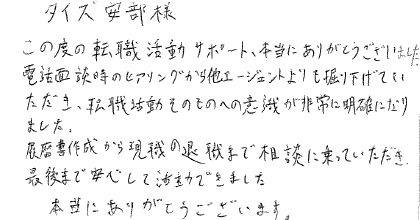 タイズ安部様
この度の転職活動サポート、本当にありがとうございました
電話面談時のヒアリングから他エージェントよりも掘り下げてい
ただき、転職活動そのものへの意識が非常に明確になり
ました。
履歴書作成から現職の退職まで相談に乗っていただき、
最後まで安心して活動できました
本当にありがとうございます。